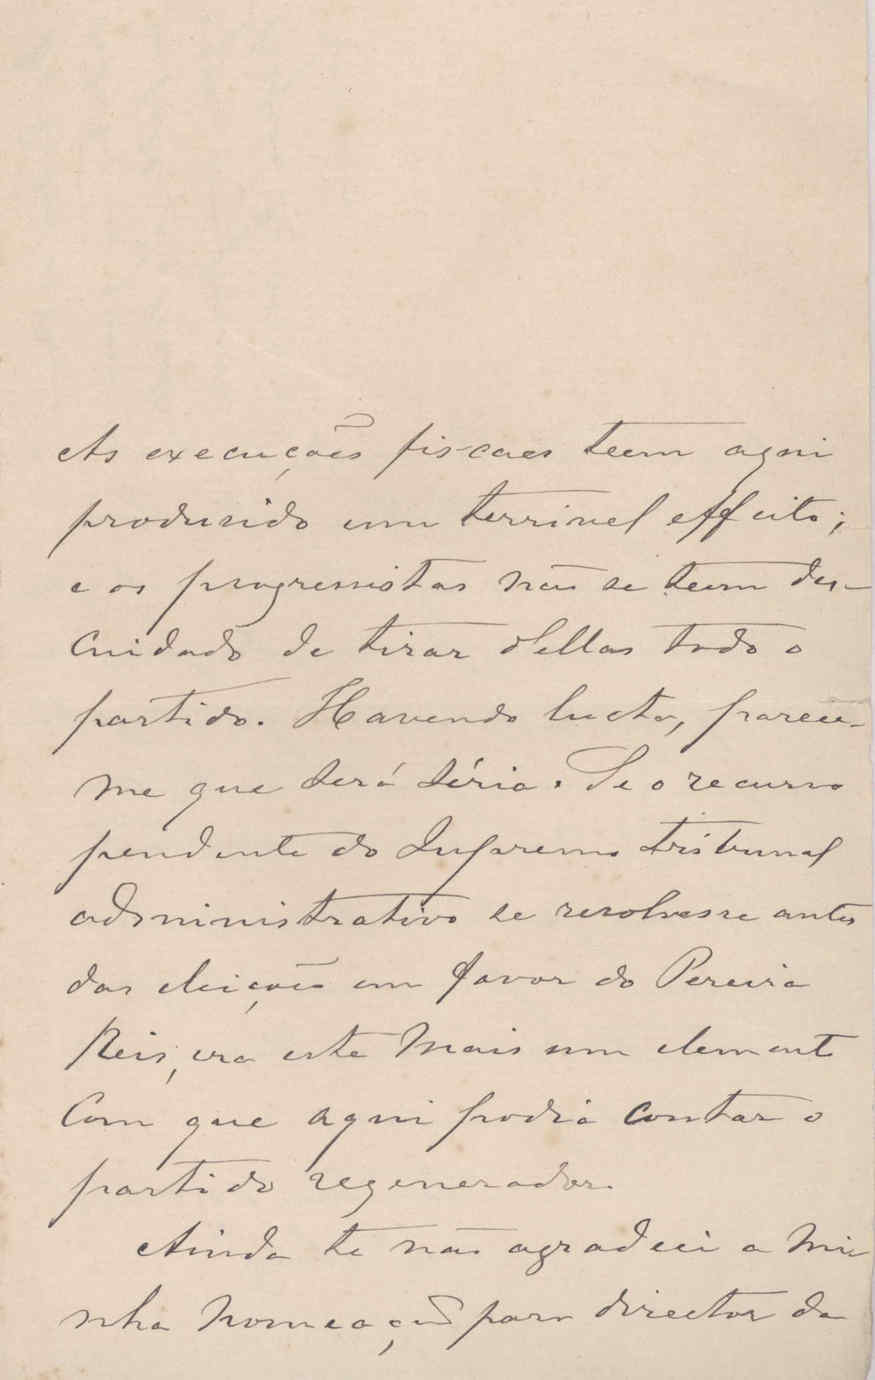 As execuções fiscaes teem aqui
produsido um terrivel effeito;
e os progressistas não se teem des-
cuidado de tirar d'ellas todo o
partido. Havendo lucta, parece-
me que será séria. Se o recurso
pendente do Supremo tribunal
administrativo se resolvesse antes
das eleições em favor do Pereira
Reis, era este mais um elemento
com que aqui podia contar o
partido regenerador.
Ainda te não agradeci a mi
nha nomeação para director da